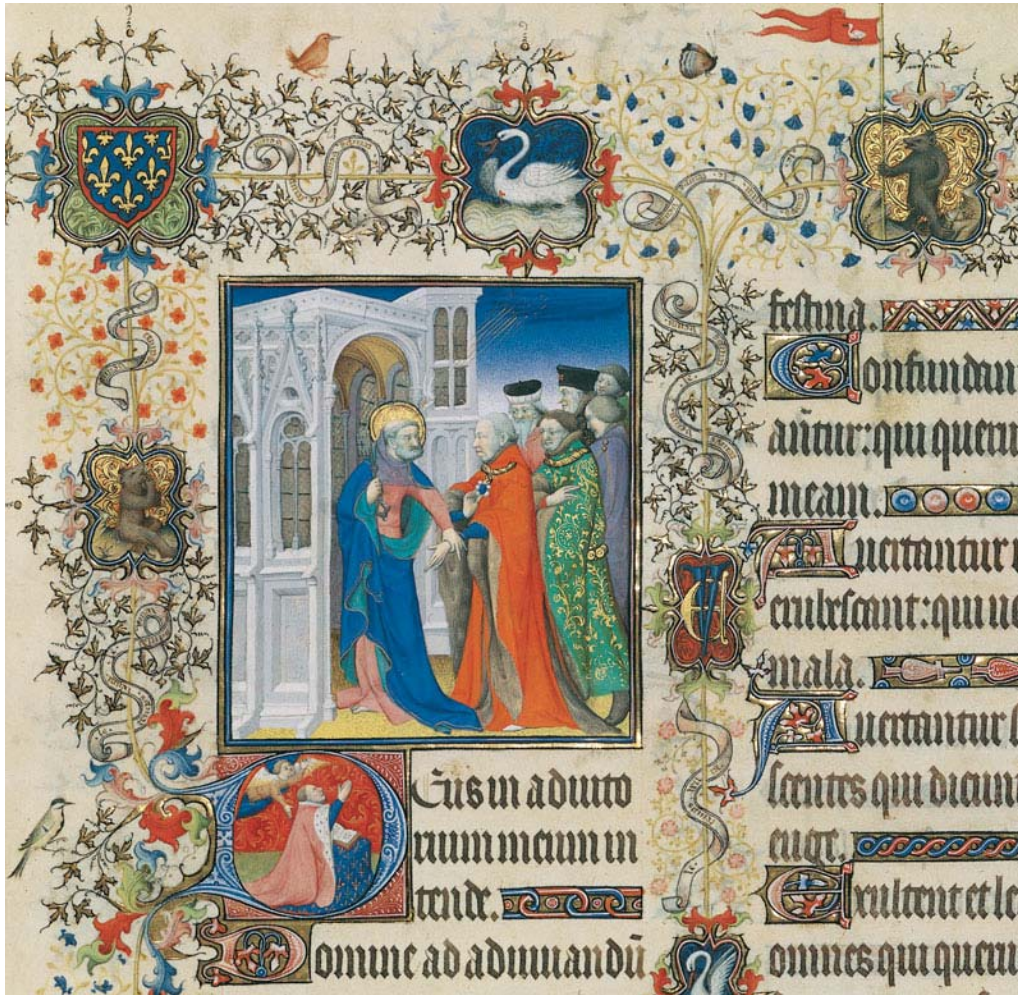 Deus in adiuto
rium meum in
tende.
Domine ad adiuuandū
festina.
Confundan
antur: qui queru
meam.
Auertantur r
erubescant: qui uo
mala.
Auertantur
scentes qui dicun
euge.
Exultent et le
omnes qui querun